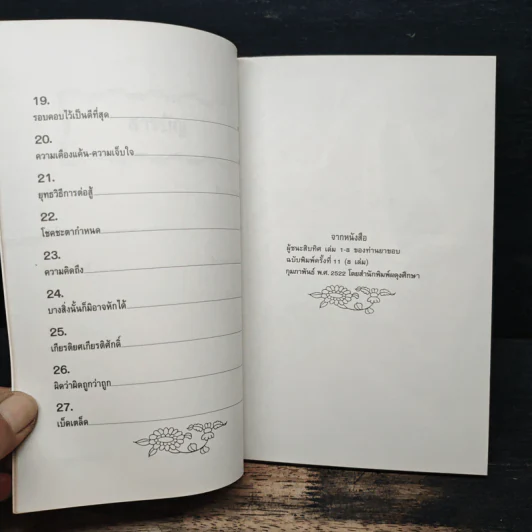 19.
รอบคอบไว้เป็นดีที่สุด
20.
ความเคืองแค้น-ความเจ็บใจ
21.
ยุทธวิธีการต่อสู้
22.
โชคชะตากำหนด
23.
ความคิดถึง
24.
บางสิ่งนั้นก็มิอาจหักได้
25.
เกียรติยศเกียรติศักดิ์
26.
ผิดว่าผิดถูกว่าถูก
27.
เบ็ดเตล็ด
จากหนังสือ
ผู้ชนะสิบทิศ เล่ม 1-8 ของท่านยาขอบ
ฉบับพิมพ์ครั้งที่ 11 (8 เล่ม)
กุมภาพันธ์ พ.ศ. 2522 โดยสำนักพิมพ์ผดุงศึกษา